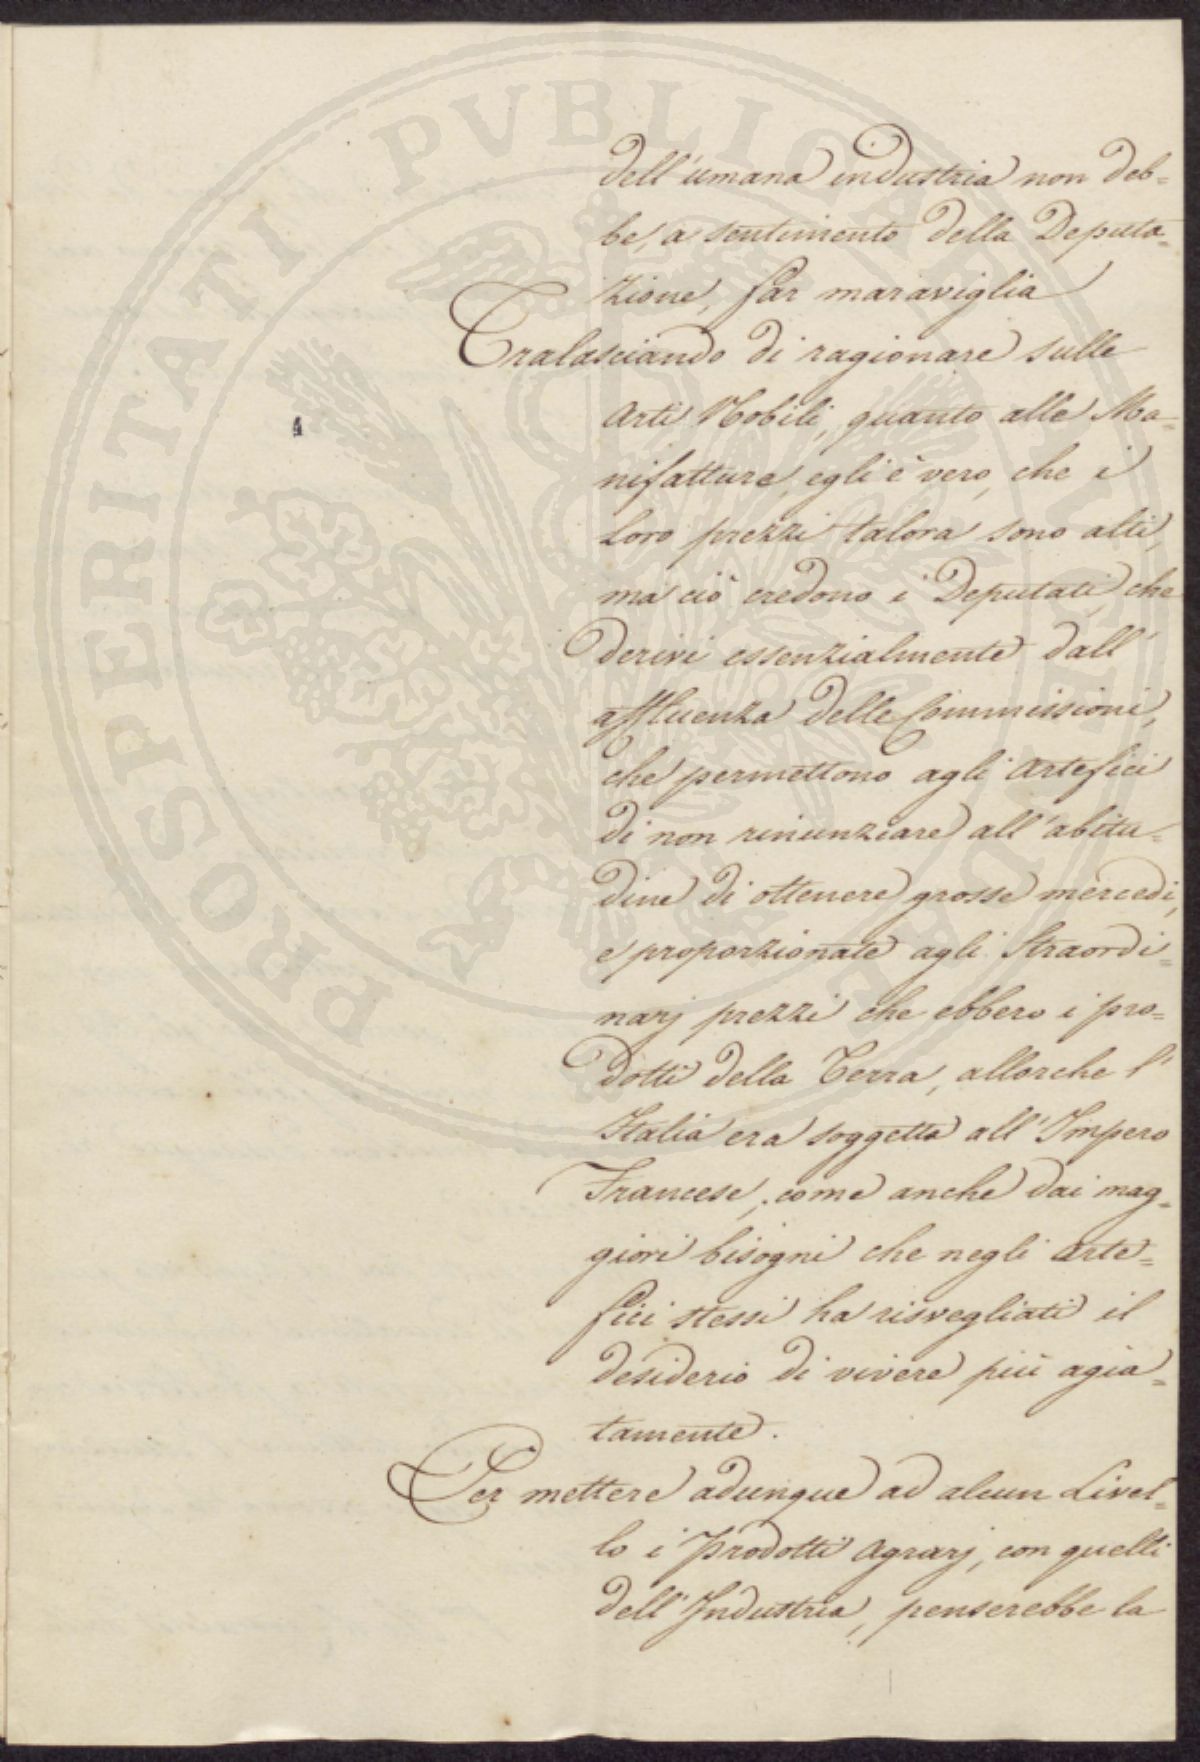 dell'umana industria non deb=
be, a sentimento della Deputa=
zione, far maraviglia
Tralasciando di ragionare sulle
Arti Nobili, quanto alle Ma=
nifatture, egli è vero, che i
loro prezzi talora sono alti,
ma ciò credono i Deputati, che
derivi essenzialmente dall'
affluenza delle Commissioni,
che permettono agli Artefici
di non rinunziare all'abitu=
dine di ottenere grosse mercedi,
e proporzionate agli Straordi=
narj prezzi che ebbero i pro=
dotti della Terra, allorche l'
Italia era soggetta all'Impero
Francese, come anche dai mag=
giori bisogni che negli Arte=
fici stessi ha risvegliati il
desiderio di vivere più agia=
tamente.
Per mettere adunque ad alcun Livel=
lo i Prodotti Agrarj, con quelli
dell'Industria, penserebbe la
PROSPERITATI PVBLICAE